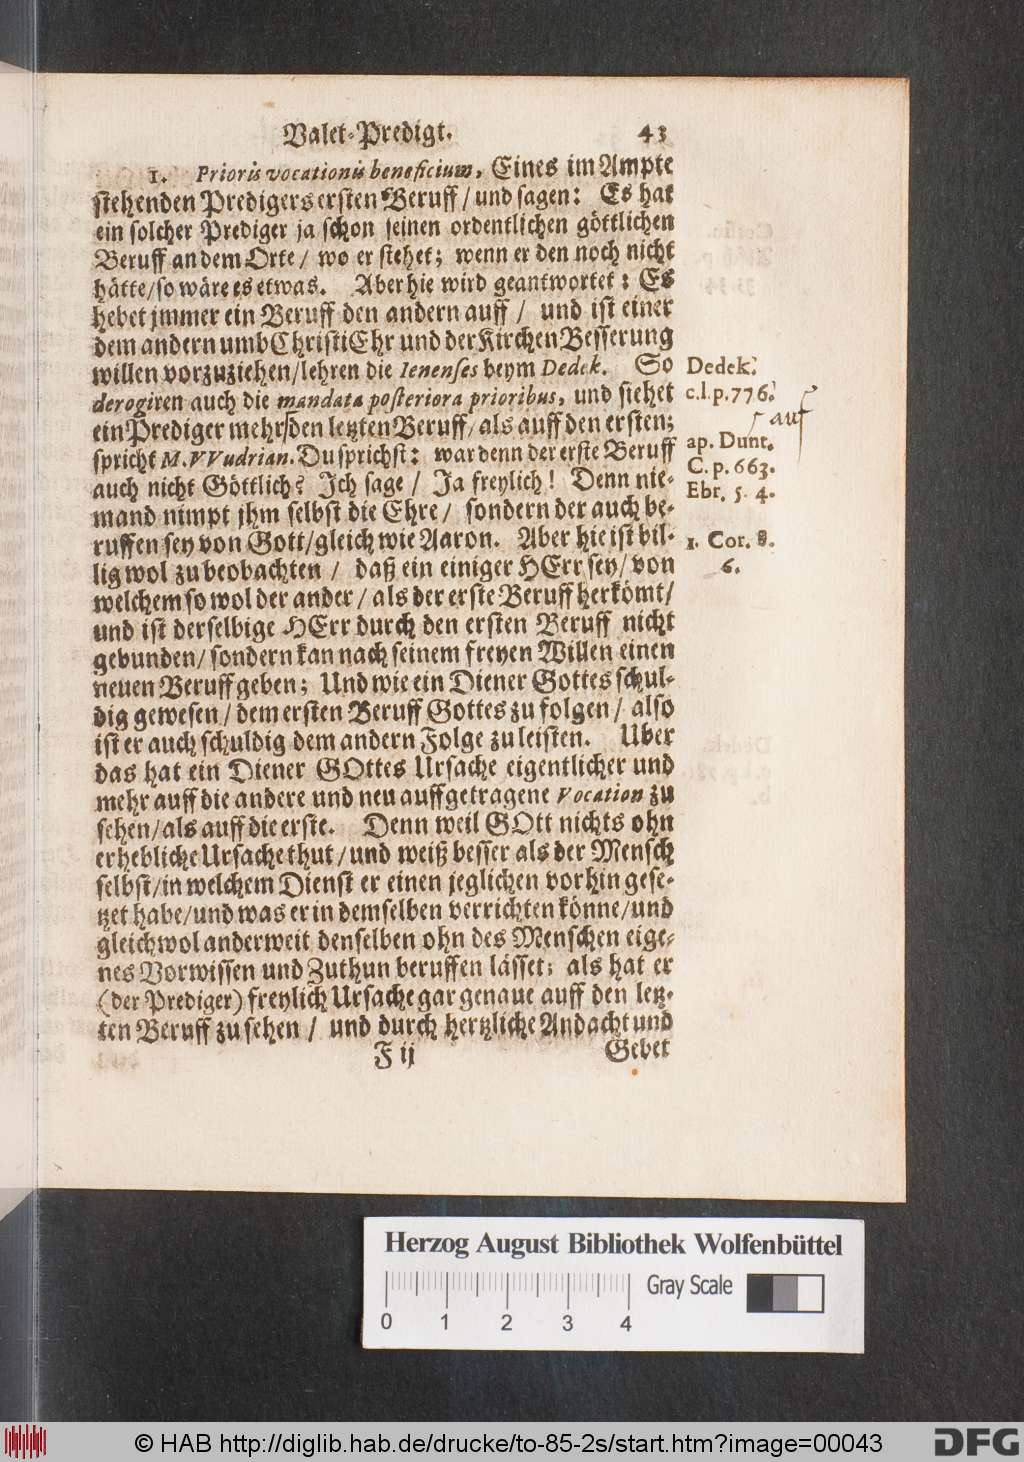 Valet-Predigt. 43
1. Prioris vocationis beneficium, Eines im Ampte
stehenden Predigers ersten Beruff / und sagen: Es hat
ein solcher Prediger ja schon seinen ordentlichen göttlichen
Beruff an dem Orte / wo er stehet; wenn er den noch nicht
hätte / so wäre es etwas. Aber hie wird geantwortet: Es
hebet jmmer ein Beruff den andern auff / und ist einer
dem andern umb Christi Ehr und der Kirchen Besserung
willen vorzuziehen / lehren die Ienenses beym Dedek. So
derogiren auch die mandata posteriora prioribus, und siehet
ein Prediger mehr / den letzten Beruff / als auff den ersten;
spricht M. VVudrian. Du sprichst: war denn der erste Beruff
auch nicht Göttlich? Ich sage / Ja freylich! Denn nie-
mand nimpt jhm selbst die Ehre / sondern der auch be-
ruffen sey von Gott / gleich wie Aaron. Aber hie ist bil-
lig wol zu beobachten / daß ein einiger HErr sey / von
welchem so wol der ander / als der erste Beruff herkömt /
und ist derselbige HErr durch den ersten Beruff nicht
gebunden / sondern kan nach seinem freyen Willen einen
neuen Beruff geben; Und wie ein Diener Gottes schul-
dig gewesen / dem ersten Beruff Gottes zu folgen / also
ist er auch schuldig dem andern Folge zu leisten. Uber
das hat ein Diener GOttes Ursache eigentlicher und
mehr auff die andere und neu auffgetragene Vocation zu
sehen / als auff die erste. Denn weil GOtt nichts ohn
erhebliche Ursache thut / und weiß besser als der Mensch
selbst / in welchem Dienst er einen jeglichen vorhin gese-
tzet habe / und was er in demselben verrichten könne / und
gleichwol anderweit denselben ohn des Menschen eige-
nes Vorwissen und Zuthun beruffen lässet; als hat er
(der Prediger) freylich Ursache gar genaue auff den letz-
ten Beruff zu sehen / und durch hertzliche Andacht und
F ij Gebet
Dedek.
c.l.p.776.
auf
ap. Dunt.
C. p. 663.
Ebr. 5. 4.
1. Cor. 8.
6.
Herzog August Bibliothek Wolfenbüttel
Gray Scale
0 1 2 3 4
© HAB http://diglib.hab.de/drucke/to-85-2s/start.htm?image=00043
DFG